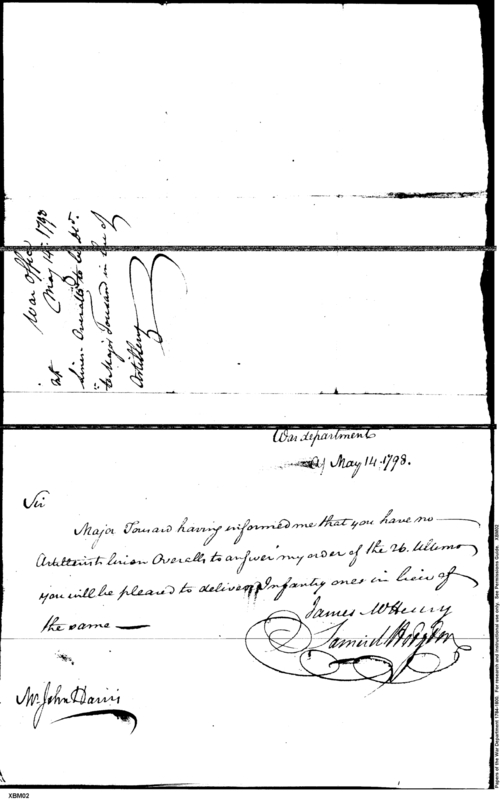 War Office
at May 14th 1798
Linen Overalls to be Del.
to Major Tousard in lieu of
Artillery
War department
May 14. 1798.
Sir
Major Tousard having informed me that you have no
Artillerist linien Overalls to answer my order of the 26. Ultimo
you will be pleased to deliver Infantry ones in lieu of
the same
James McHenry
Samuel Hodgdon
Mr John Harris
Papers of the War Department 1784-1800. For research and instructional use only. See Permissions Guide. XBM02
XBM02